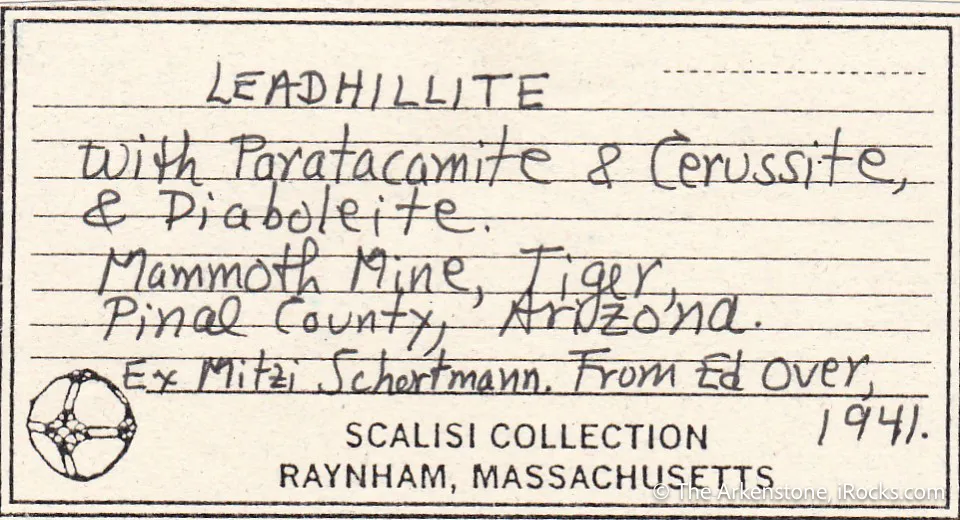 LEADHILLITE
with Paratacamite & Cerussite,
& Diaboleite.
Mammoth Mine, Tiger,
Pinal County, Arizona.
Ex Mitzi Schortmann. From Ed Over,
1941.
SCALISI COLLECTION
RAYNHAM, MASSACHUSETTS
© The Arkenstone, iRocks.com